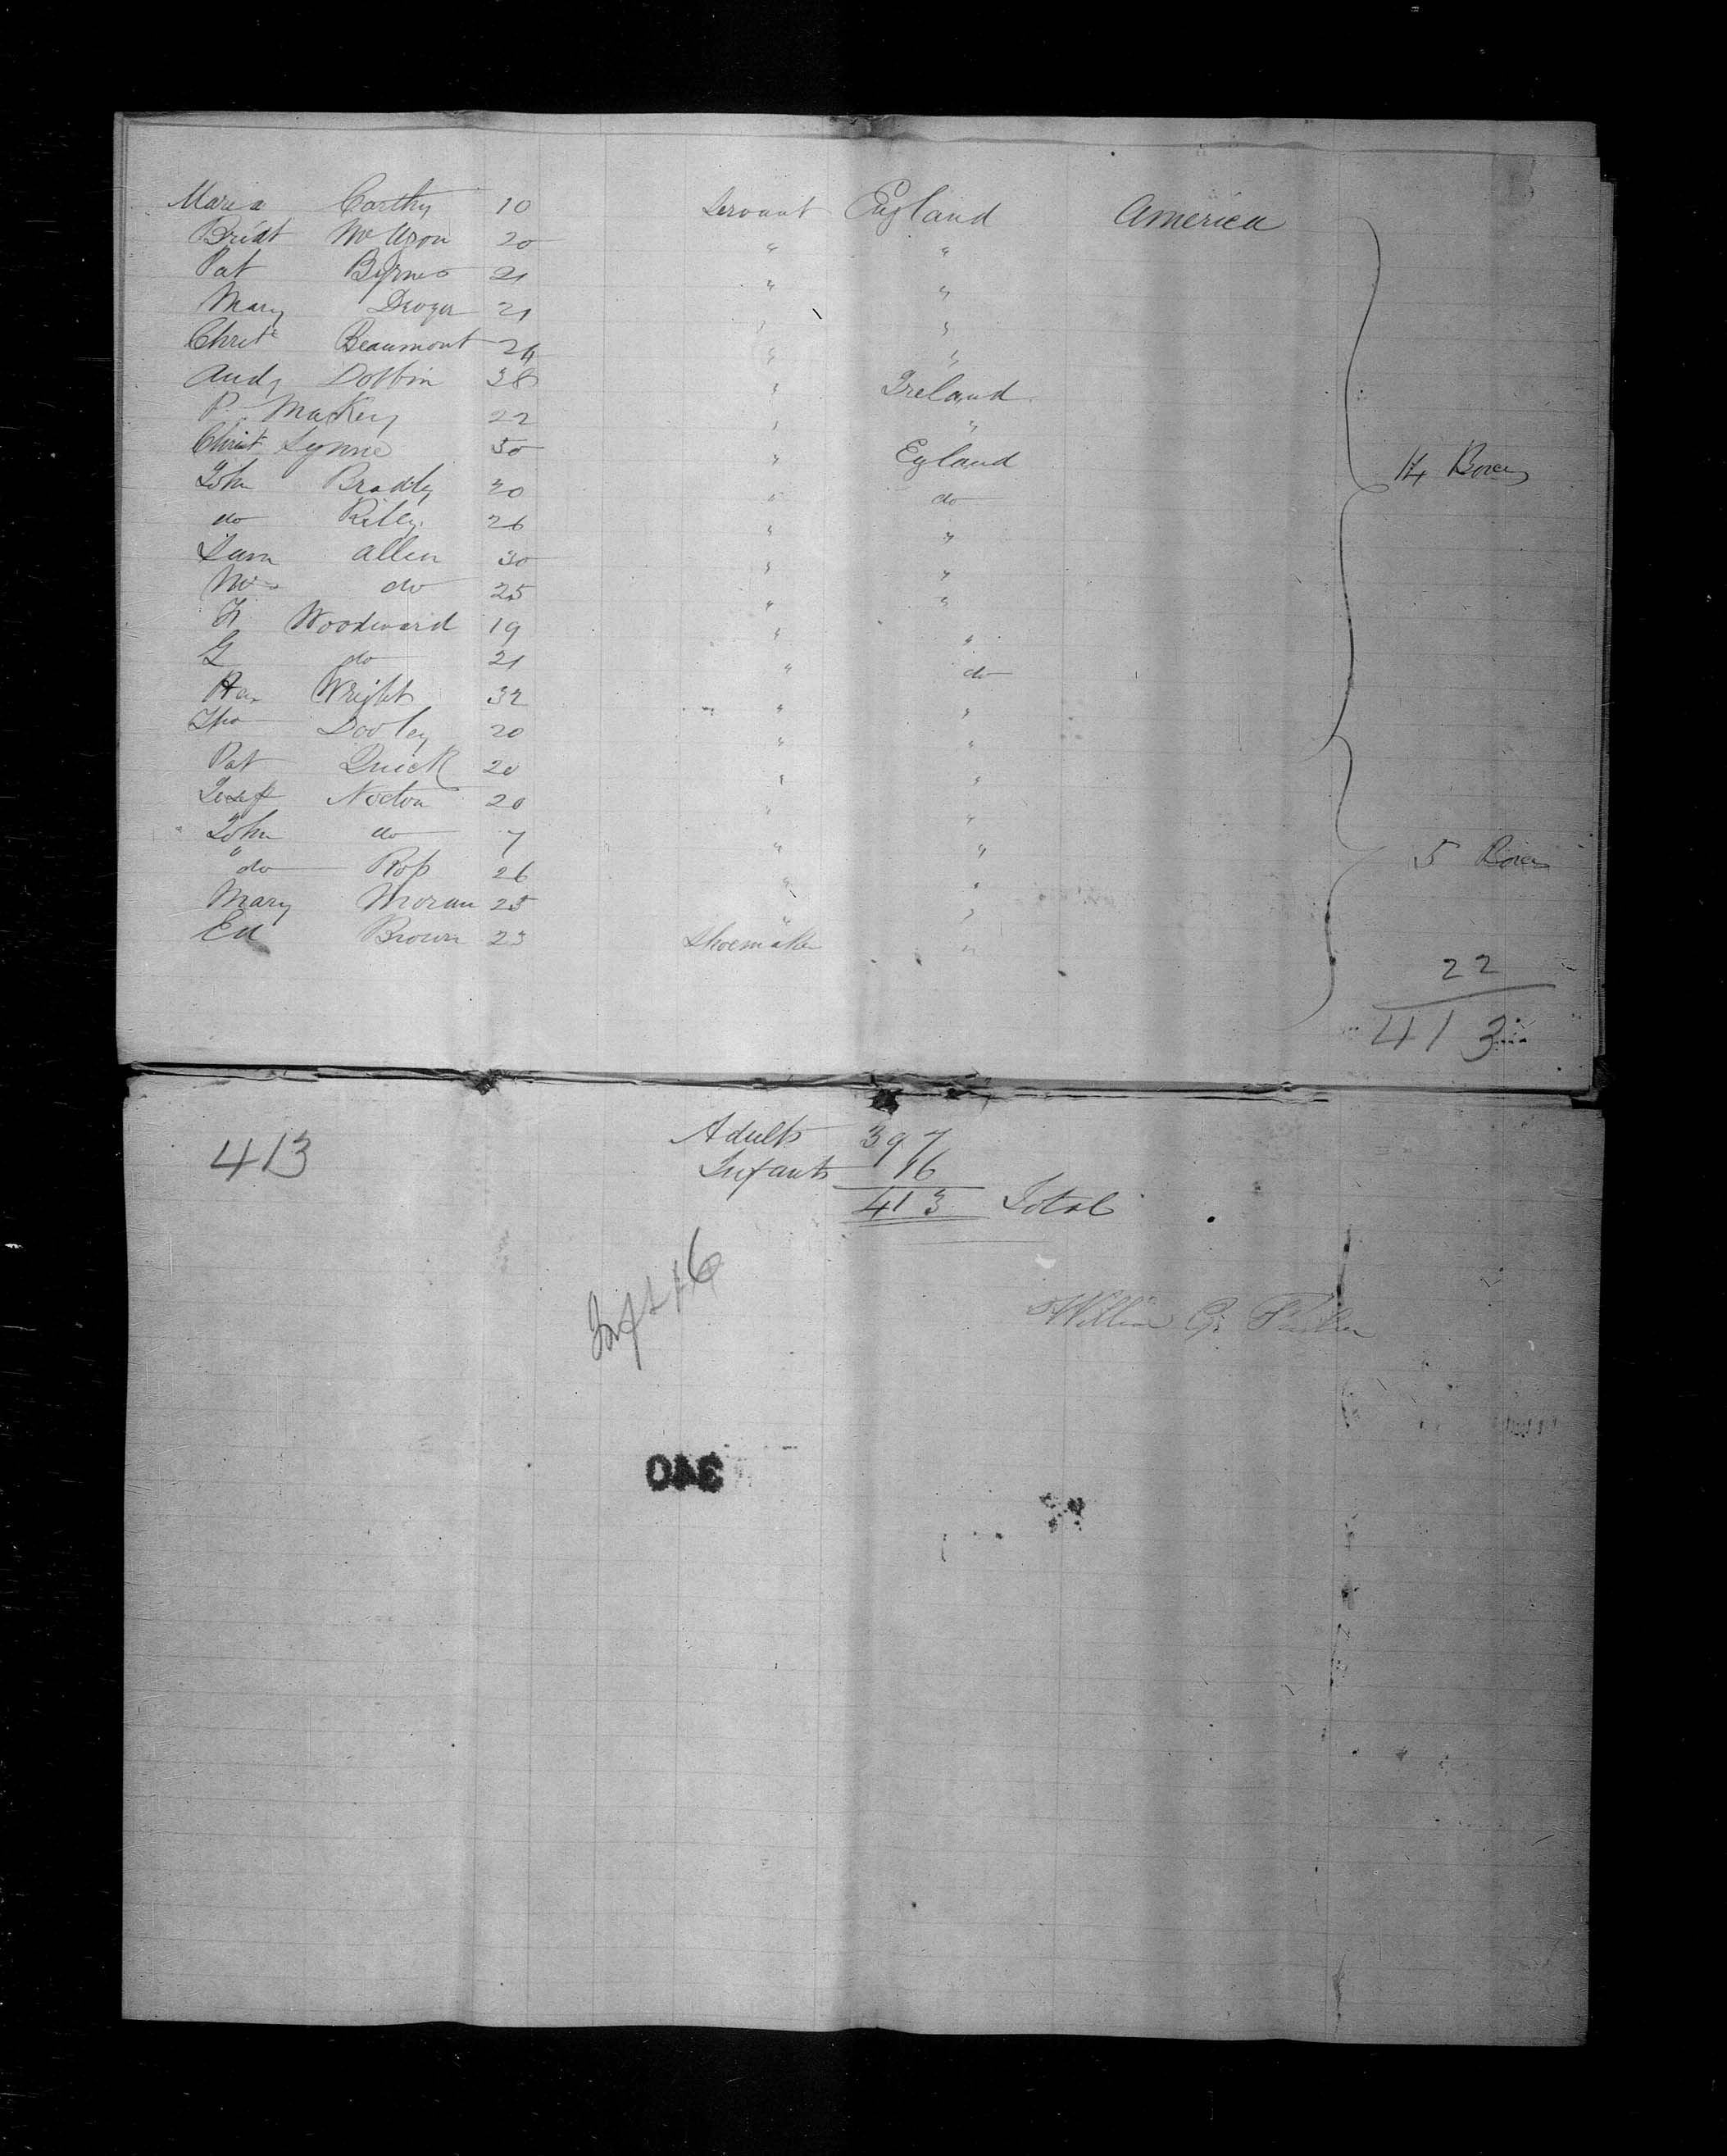 Maria Carthy 10 Servant England America
Bridt Mc 20 " "
Pat Byrnes 21 " "
Mary 21 " "
Christe Beaumont 24 " "
Andy Dobbin 38 " Ireland
P. Mackey 22 " "
Christ Lynne 30 " England
John Bradly 30 " do
do Riley 26 " "
Sam Allen 30 " "
Mrs do 25 " "
H Woodward 19 " "
G do 21 " do
Wright 32 " "
Tho Dooley 20 " "
Pat Quick 20 " "
Josef Nocton 20 " "
John do 7 " "
" do Ross 26 " "
Mary Moran 25 " "
Ed Brown 23 Shoemaker "
14 Boxes
5 Boxes
22
413
413
Adults 397
Infants 16
413 Total
Inft 16
William G.
340